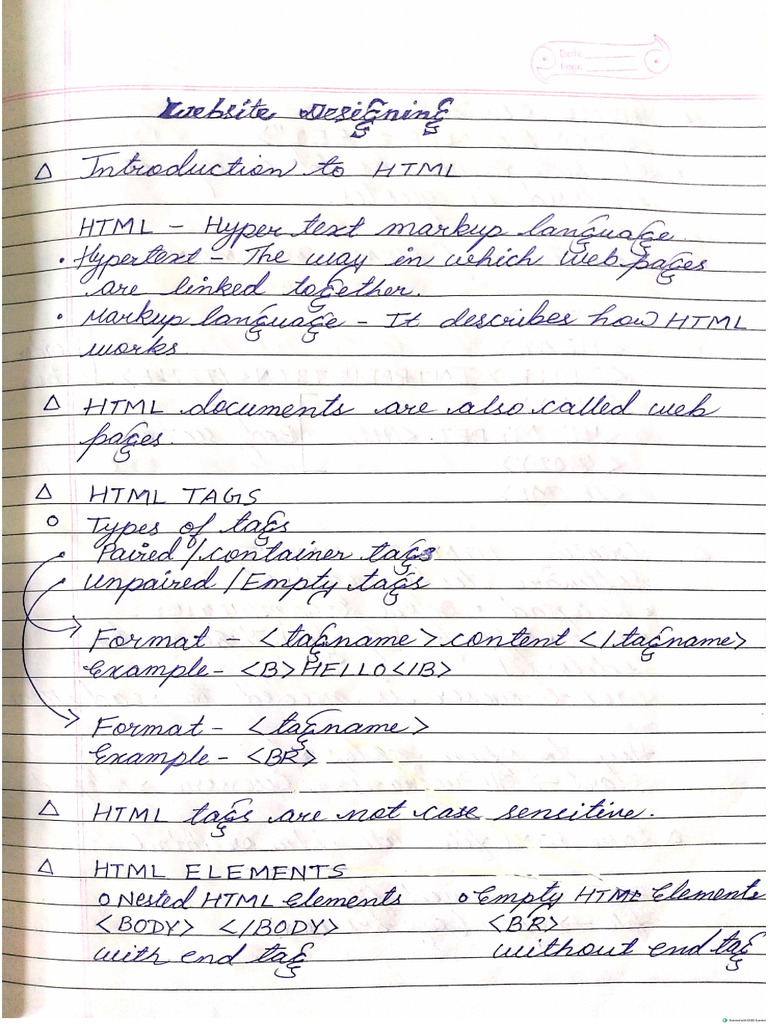 Date
Page
Website Designing
△ Introduction to HTML
HTML - Hyper text markup language
• Hypertext - The way in which web pages
are linked together.
• Markup language - It describes how HTML
works
△ HTML documents are also called web
pages.
△ HTML TAGS
○ Types of tags
• Paired / container tags
• Unpaired / Empty tags
Format - <tagname> content </tagname>
Example - <B> HELLO </B>
Format - <tagname>
Example - <BR>
△ HTML tags are not case sensitive.
△ HTML ELEMENTS
○ Nested HTML Elements ○ Empty HTML Elements
<BODY> </BODY> <BR>
with end tag without end tag